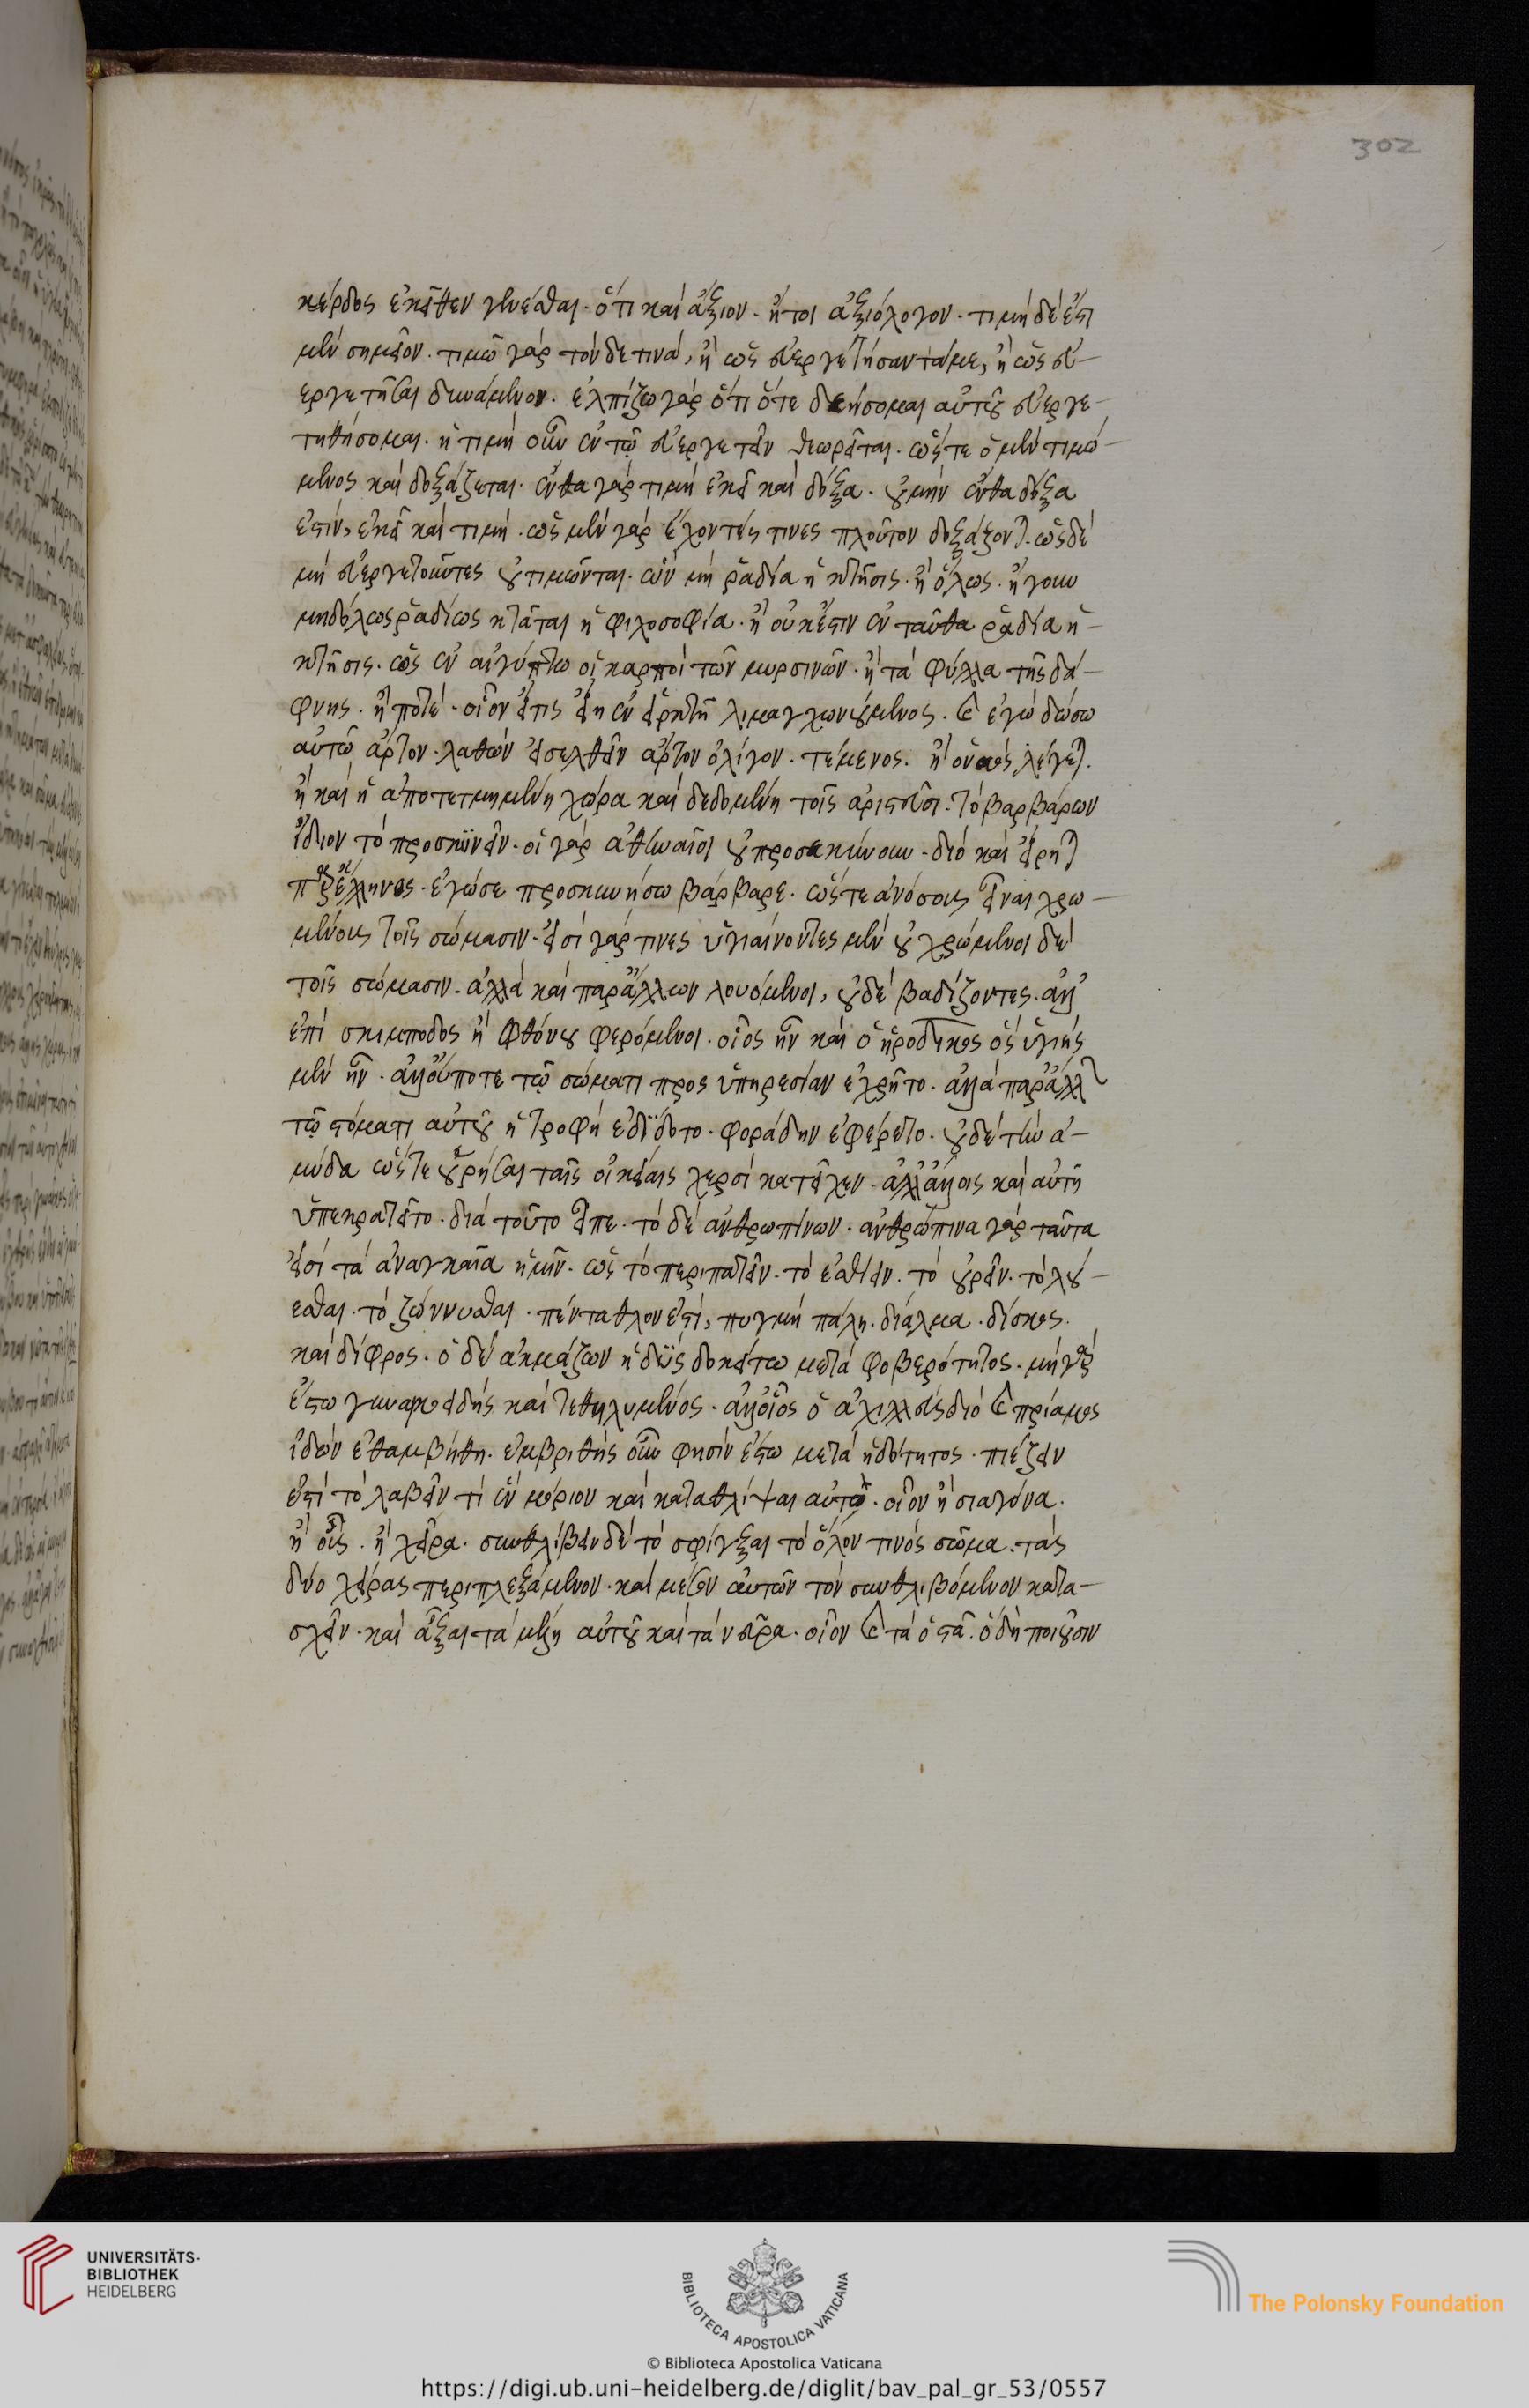 302
κέρδος ἐκεῖθεν γίνεσθαι· ὅτι καὶ ἄξιον· ἤτοι ἀξιόλογον· τιμὴ δέ ἐστι
μὲν σημεῖον· τιμῶ γὰρ τόνδε τινά, ἢ ὡς εὐεργετήσαντά με, ἢ ὡς εὐ-
εργετῆσαι δυνάμενον. ἐλπίζω γὰρ ὅτι ὅτε δεήσομαι αὐτοῦ εὐεργε-
τηθήσομαι. ἡ τιμὴ οὖν ἐν τῷ εὐεργετεῖν θεωρεῖται. ὥστε ὁ μὲν τιμώ-
μενος καὶ δοξάζεται. ἔνθα γὰρ τιμὴ ἐκεῖ καὶ δόξα. οὐ μὴν ἔνθα δόξα
ἐστίν, ἐκεῖ καὶ τιμή. ὡς μὲν γὰρ ἔχοντές τινες πλοῦτον δοξάζονται. ὡς δὲ
μὴ εὐεργετοῦντες οὐ τιμῶνται. ὧν μὴ ῥαδία ἡ κτῆσις. ἢ ὅλως. ἤγουν
μηδόλως ῥαδίως κτᾶται ἡ φιλοσοφία. ἢ οὐκ ἔστιν ἐνταῦθα ῥαδία ἡ-
κτῆσις. ὡς ἐν αἰγύπτω οἱ καρποὶ τῶν μυρσινῶν. ἢ τὰ φύλλα τῆς δά-
φνης. ἢ ποτέ. οἷον εἴ τις εἴη ἐν εἱρκτῇ λιμαγχωνούμενος. καὶ ἐγὼ δώσω
αὐτῶ ἄρτον. λαθὼν εἰσελθεῖν ἄρτον ὀλίγον. τέμενος. ἢ ὁ ναός λέγεται.
ἢ καὶ ἡ ἀποτετμημένη χώρα καὶ δεδομένη τοῖς ἀριστεῦσι. τὸ βαρβάρων
ἴδιον τὸ προσκϋνεῖν. οἱ γὰρ ἀθηναῖοι οὐ προσεκύνουν. διὸ καὶ εἴρηται
παρ' ἕλληνος. ἐγώ σε προσκυνήσω βάρβαρε. ὥστε ἀνόσους εἶναι χρω-
μένους τοῖς σώμασιν. εἰσὶ γάρ τινες ὑγιαίνοντες μὲν οὐ χρώμενοι δὲ
τοῖς σώμασιν. ἀλλὰ καὶ παρ' ἄλλων λουόμενοι, οὐδὲ βαδίζοντες. ἀλλ'
ἐπὶ σκίμποδος ἢ φθόνου φερόμενοι. οἷος ἦν καὶ ὁ ἡρόδικος ὃς ὑγιὴς
μὲν ἦν. ἀλλ' οὔποτε τῷ σώματι προς ὑπηρεσίαν ἐχρῆτο. ἀλλὰ παρ' ἄλλ
τῷ στόματι αὐτοῦ ἡ τροφὴ ἐδίδοτο. φοράδην ἐφέρετο. οὐδὲ τὴν ἀ-
μύδα ὥστε οὐρῆσαι ταῖς οἰκείαις χερσὶ κατεῖχεν. ἀλλ' ἄλλοις καὶ αὐτὴ
ὑπεκρατεῖτο. διὰ τοῦτο εἶπε. τὸ δὲ ἀνθρωπίνων. ἀνθρώπινα γὰρ ταῦτα
εἰσὶ τὰ ἀναγκαῖα ἡμῖν. ὡς τὸ περιπατεῖν. τὸ ἐσθίειν. τὸ οὐρεῖν. τὸ λού-
εσθαι. τὸ ζώννυσθαι. πένταθλον ἐστὶ, πυγμὴ πάλη. διάλμα. δίσκος.
καὶ δίφρος. ὁ δὲ ἀκμάζων ἡδὺς δοκείτω μετὰ φοβερότητος. μὴ γὰρ
ἔστω γυναικειώδης καὶ τεθηλυμένος. ἀλλ' οἷος ὁ ἀχιλλεύς διὸ καὶ πρίαμος
ἰδὼν ἐθαμβήθη. ἐμβριθὴς οὖν φησὶν ἔστω μετὰ ἡδύτητος. πιέζειν
ἐστὶ τὸ λαβεῖν τὶ ἓν μόριον καὶ καταθλίψαι αὐτῷ. οἷον ἢ σιαγόνα.
ἢ οὖς. ἢ χεῖρα. συνθλίβειν δὲ τὸ σφίγξαι τὸ ὅλον τινὸς σῶμα. τὰς
δύο χεῖρας περιπλεξάμενον. καὶ μέσον αὐτῶν τὸν συνθλιβόμενον κατα-
σχεῖν. καὶ ἆξαι τὰ μέλη αὐτοῦ καὶ τὰ νεῦρα. οἷον καὶ τὰ ὀστᾶ. ὃ δὴ ποιοῦσιν
UNIVERSITÄTS-
BIBLIOTHEK
HEIDELBERG
BIBLIOTECA APOSTOLICA VATICANA
The Polonsky Foundation
© Biblioteca Apostolica Vaticana
https://digi.ub.uni-heidelberg.de/diglit/bav_pal_gr_53/0557